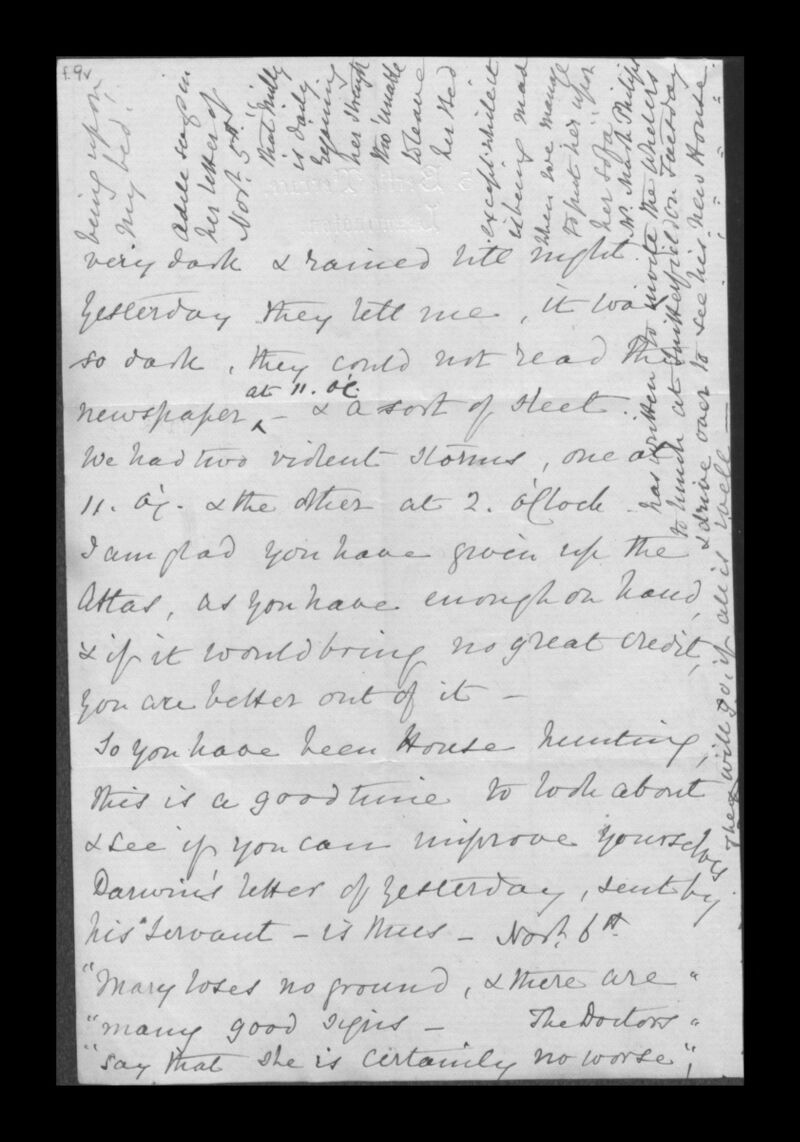 f.9v
very dark & rained like night.
Yesterday they tell me, it was
so dark, they could not read the
newspaper at 11. o'C. - & a sort of sleet.
We had two violent storms, one at
11. o'C. & the other at 2. o'Clock -
I am glad you have given up the
Atlas, as you have enough on hand,
& if it would bring no great credit,
you are better out of it -
So you have been House hunting,
this is a good time to look about
& see if you can improve yourselves
Darwin's letter of Yesterday, sent by
his Servant - is thus - Novr. 6th
"Mary loses no ground, & there are "
"many good signs - The Doctors "
"say that she is certainly no worse",
being upon
my bed.
Adele says in
her letter of
Novr. 5th
that Milly
is daily
regaining
her strength
tho' unable
to leave
her bed
except whilst
is being made
when we manage
to put her upon
her sofa
Mr. Mark Philips
has written to invite the Whelers
to lunch at Snitterfield on Tuesday
& drive over to see his new House.
They will go if all is well -